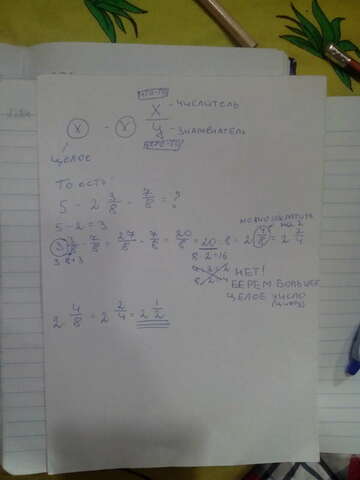 X - ЧИСЛИТЕЛЬ
X - X
У - ЗНАМЕНАТЕЛЬ
ЦЕЛОЕ
ТО ЕСТЬ:
5 - 2 3/8 - 7/8 = ?
5 - 2 = 3
3 3/8 - 7/8 = 27/8 - 7/8 = 20/8 = 20 : 8 = 2 4/8 = 2 2/4
3·8+3
8·2=16
НА 2
НЕТ!
БЕРЕМ БОЛЬШЕЕ
ЦЕЛОЕ ЧИСЛО
2 4/8 = 2 2/4 = 2 1/2